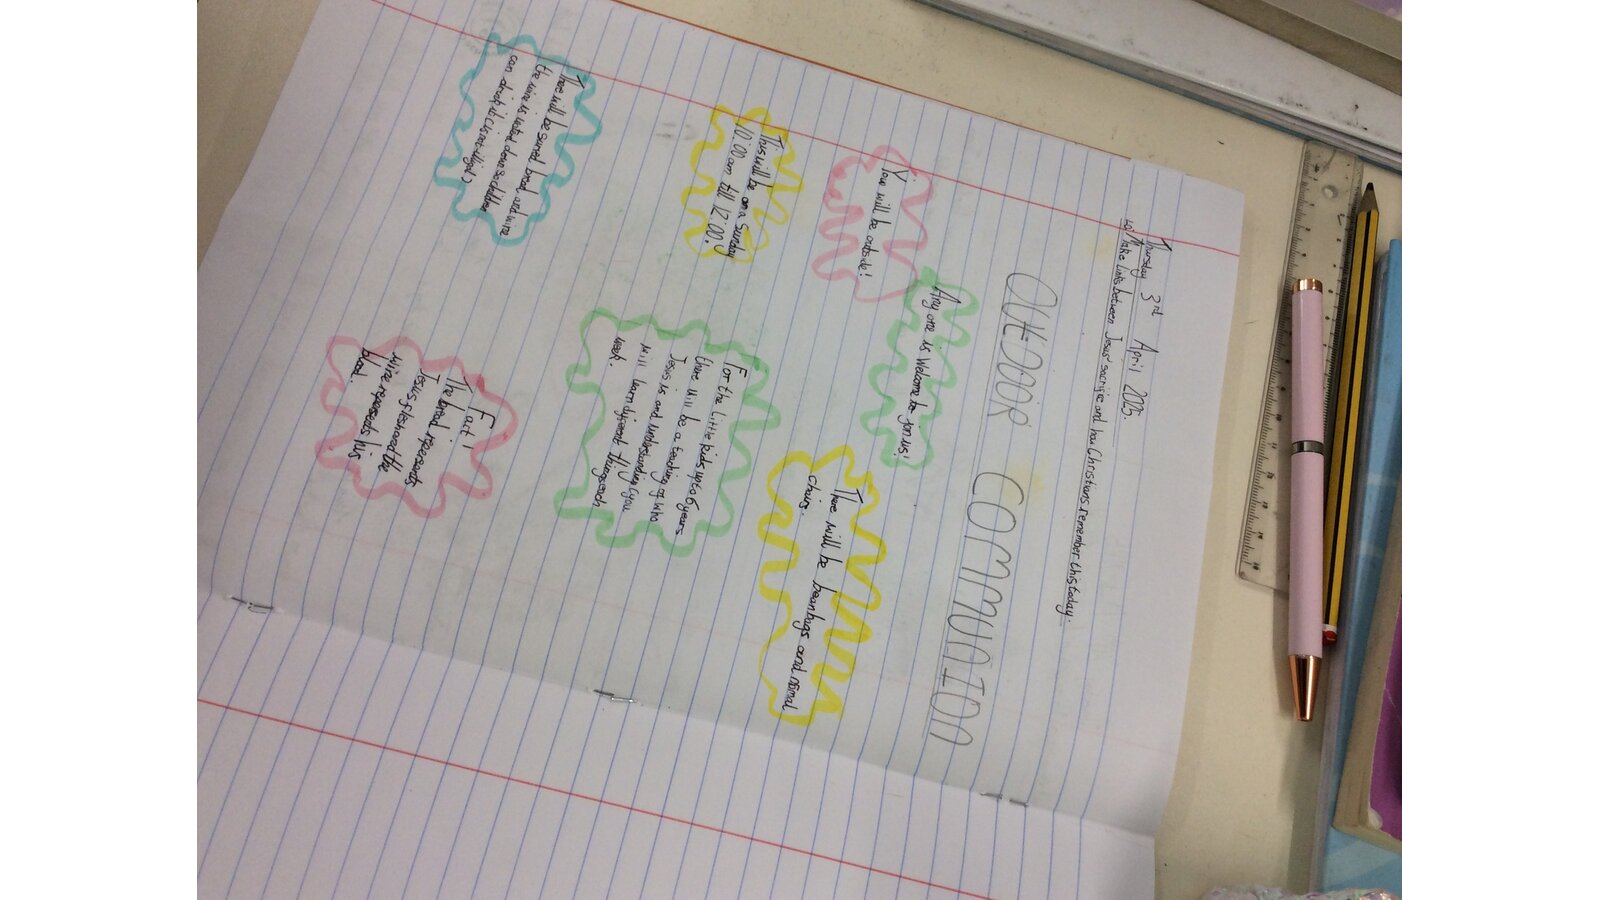 Thursday 3rd April 2025.
LO: Make links between Jesus' sacrifice and how Christians remember this today.
OUtDOOR COMMUNION
You will be outside!
Any one is Welcome to join us!
This will be on a Sunday
10:00am till 12:00!
There will be beanbags and normal
chairs.
There will be served bread and wine
the wine is waterd down so children
can drink it (its not illigal)
For the little kids up to 6 years
there will be a teaching of who
Jesus is and understanding (you
will learn different things each
week.
Fact!
The bread represents
Jesus flesh and the
wine represents his
blood.